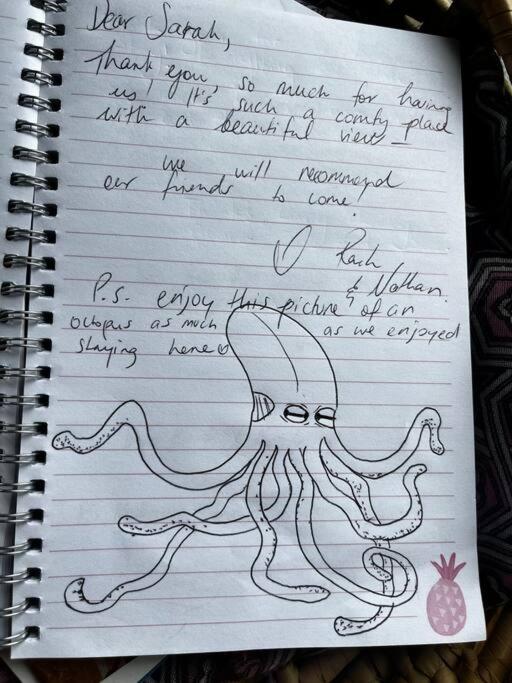 Dear Sarah,
Thank you, so much for having
us! It's such a comfy place
with a beautiful view –
We will recommend
our friends to come!
Rach
& Nathan.
P.s. enjoy this picture of an
octopus as much as we enjoyed
staying here